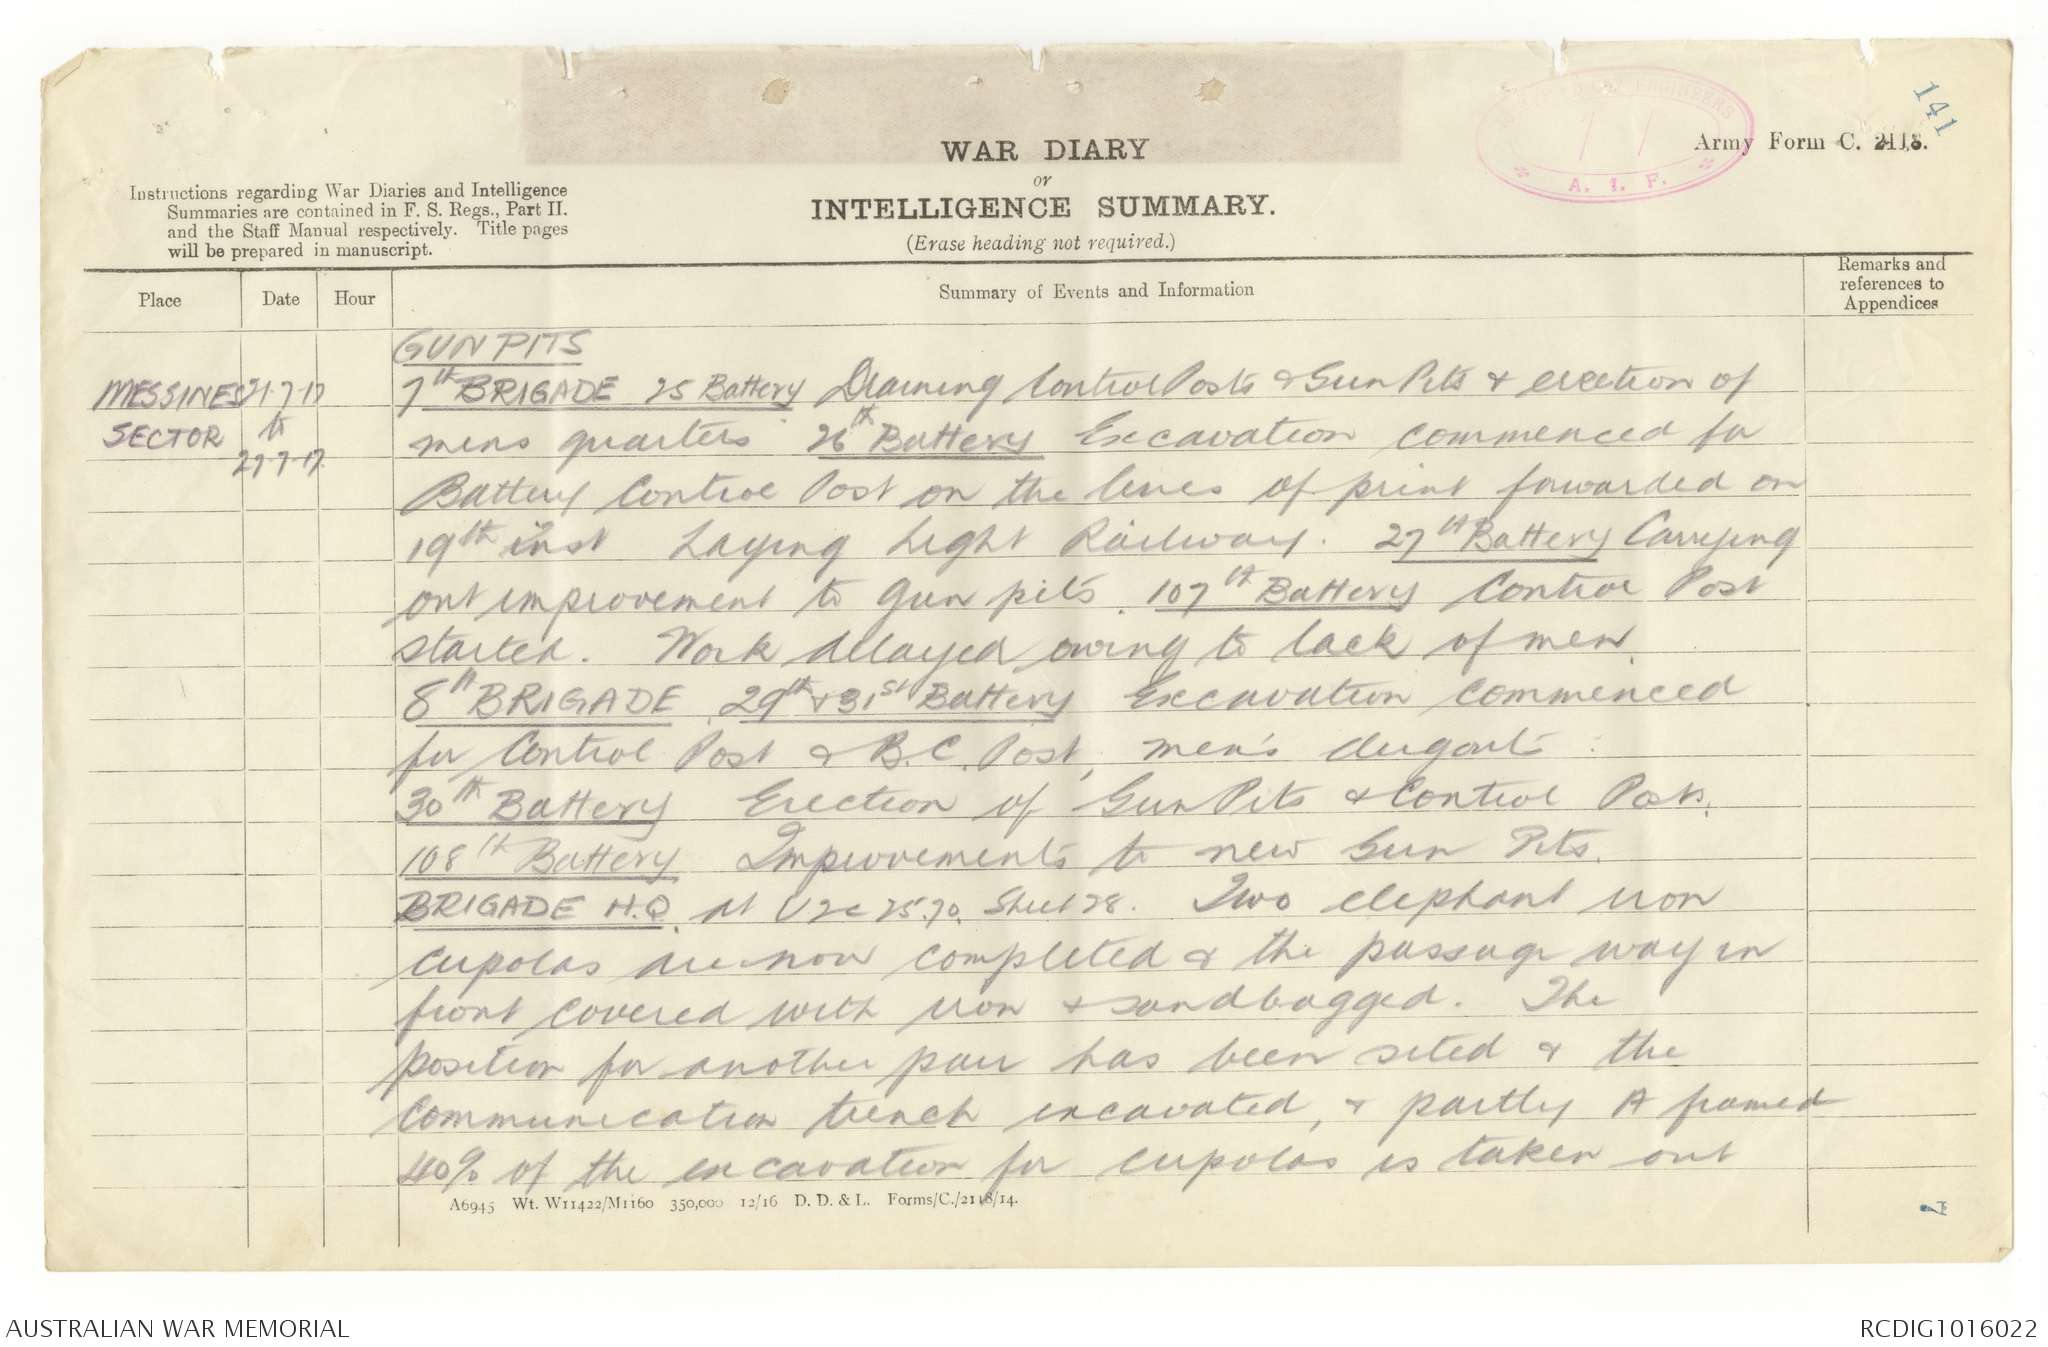 141
ENGINEERS
A. I. F.
Army Form C. 2118.
WAR DIARY
or
INTELLIGENCE SUMMARY.
(Erase heading not required.)
Instructions regarding War Diaries and Intelligence
Summaries are contained in F. S. Regs., Part II.
and the Staff Manual respectively. Title pages
will be prepared in manuscript.
Place
Date
Hour
Summary of Events and Information
Remarks and
references to
Appendices
MESSINES
SECTOR
21-7-17
to
27-7-17
GUN PITS
7th BRIGADE 25 Battery Draining Control Posts & Gun Pits & erection of
mens quarters 26th Battery Excavation commenced for
Battery Control Post on the lines of print forwarded on
19th inst Laying Light Railway. 27th Battery Carrying
out improvement to Gun pits. 107th Battery Control Post
started. Work delayed owing to lack of men.
8th BRIGADE. 29th & 31st Battery Excavation commenced
for Control Post & B.C. Post, men's dugouts :
30th Battery Erection of Gun Pits & Control Posts.
108th Battery Improvements to new Gun Pits.
BRIGADE H.Q. at U2c 25.70. Sheet 28. Two elephant iron
cupolas are now completed & the passage way in
front covered with iron & sandbagged. The
position for another pair has been sited & the
communication trench excavated, & partly A framed
40% of the excavation for cupolas is taken out
A6945 Wt. W11422/M1160 350,000 12/16 D. D. & L. Forms/C./2118/14.
7
AUSTRALIAN WAR MEMORIAL
RCDIG1016022